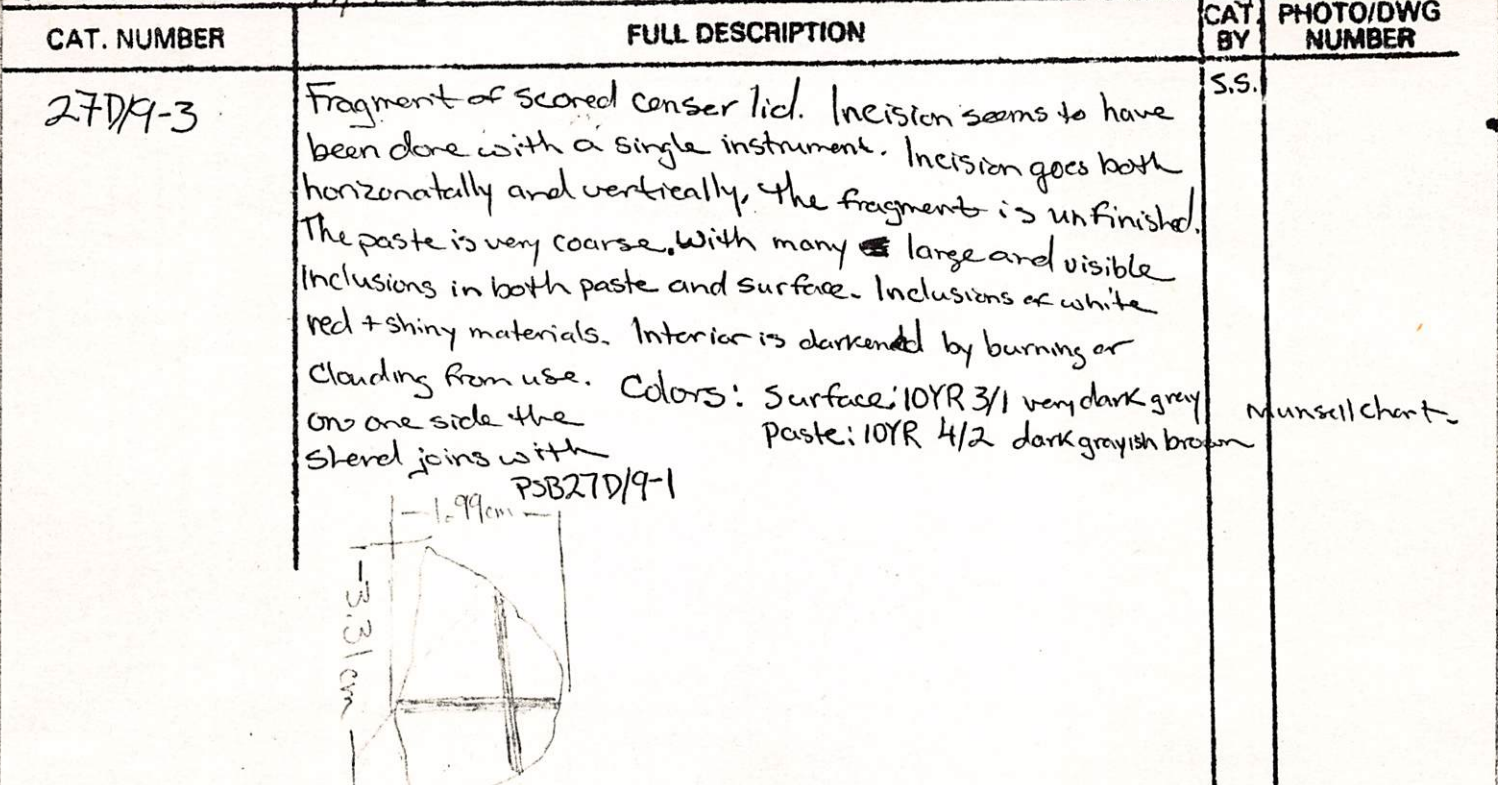 CAT. NUMBER FULL DESCRIPTION CAT. BY PHOTO/DWG NUMBER
27D/9-3
Fragment of scored censer lid. Incision seems to have
been done with a single instrument. Incision goes both
horizonatally and vertically, the fragment is unfinished.
The paste is very coarse. With many large and visible
Inclusions in both paste and surface. Inclusions of white
red + shiny materials. Interior is darkened by burning or
Clouding from use.
on one side the
sherd joins with
PSB27D/9-1
Colors: Surface: 10YR 3/1 very dark grey
Paste: 10YR 4/2 dark grayish brown
Munsell chart.
S.S.
1.99cm
3.31 cm